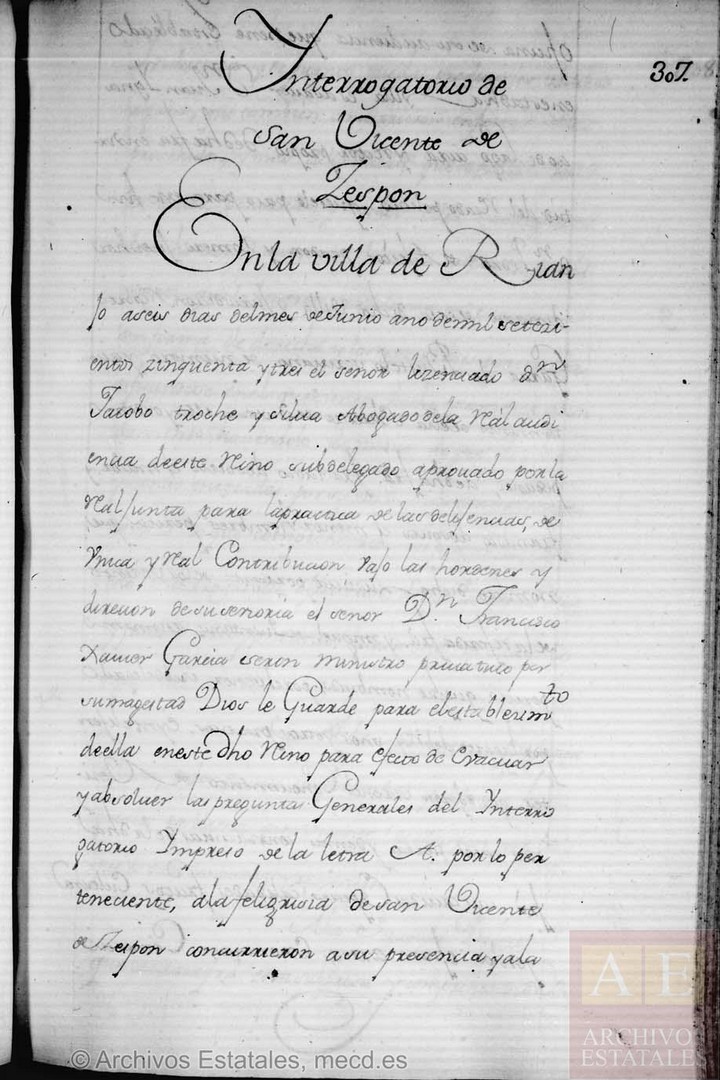 307.
Ynterrogatorio de
san Vicente de
Zespon
En la villa de Rian
jo a seis dias del mes de Junio ano de mil setezi-
entos zinquenta y tres el senor lizenciado dn
Jacobo troche y silva Abogado de la Rál audi
encia de este Reino subdelegado aprouado por la
Real Junta para la practica de las delijencias, de
Vnica y Real Contribucion vajo las hordenes y
direcion de su senoria el senor Dn Francisco
Xavier Garcia seron ministro por
su magestad Dios le Guarde para el establecimto
de ella en este dho Reino para efecto de Evacuar
y absoluer las preguntas Generales del Ynterro
gatorio Ympreso de la letra A. por lo per
teneciente, a la feligrisia de san Vicente
de Zespon concurrieron a su presencia y a la
© Archivos Estatales, mecd.es
AE
ARCHIVO
ESTATALES